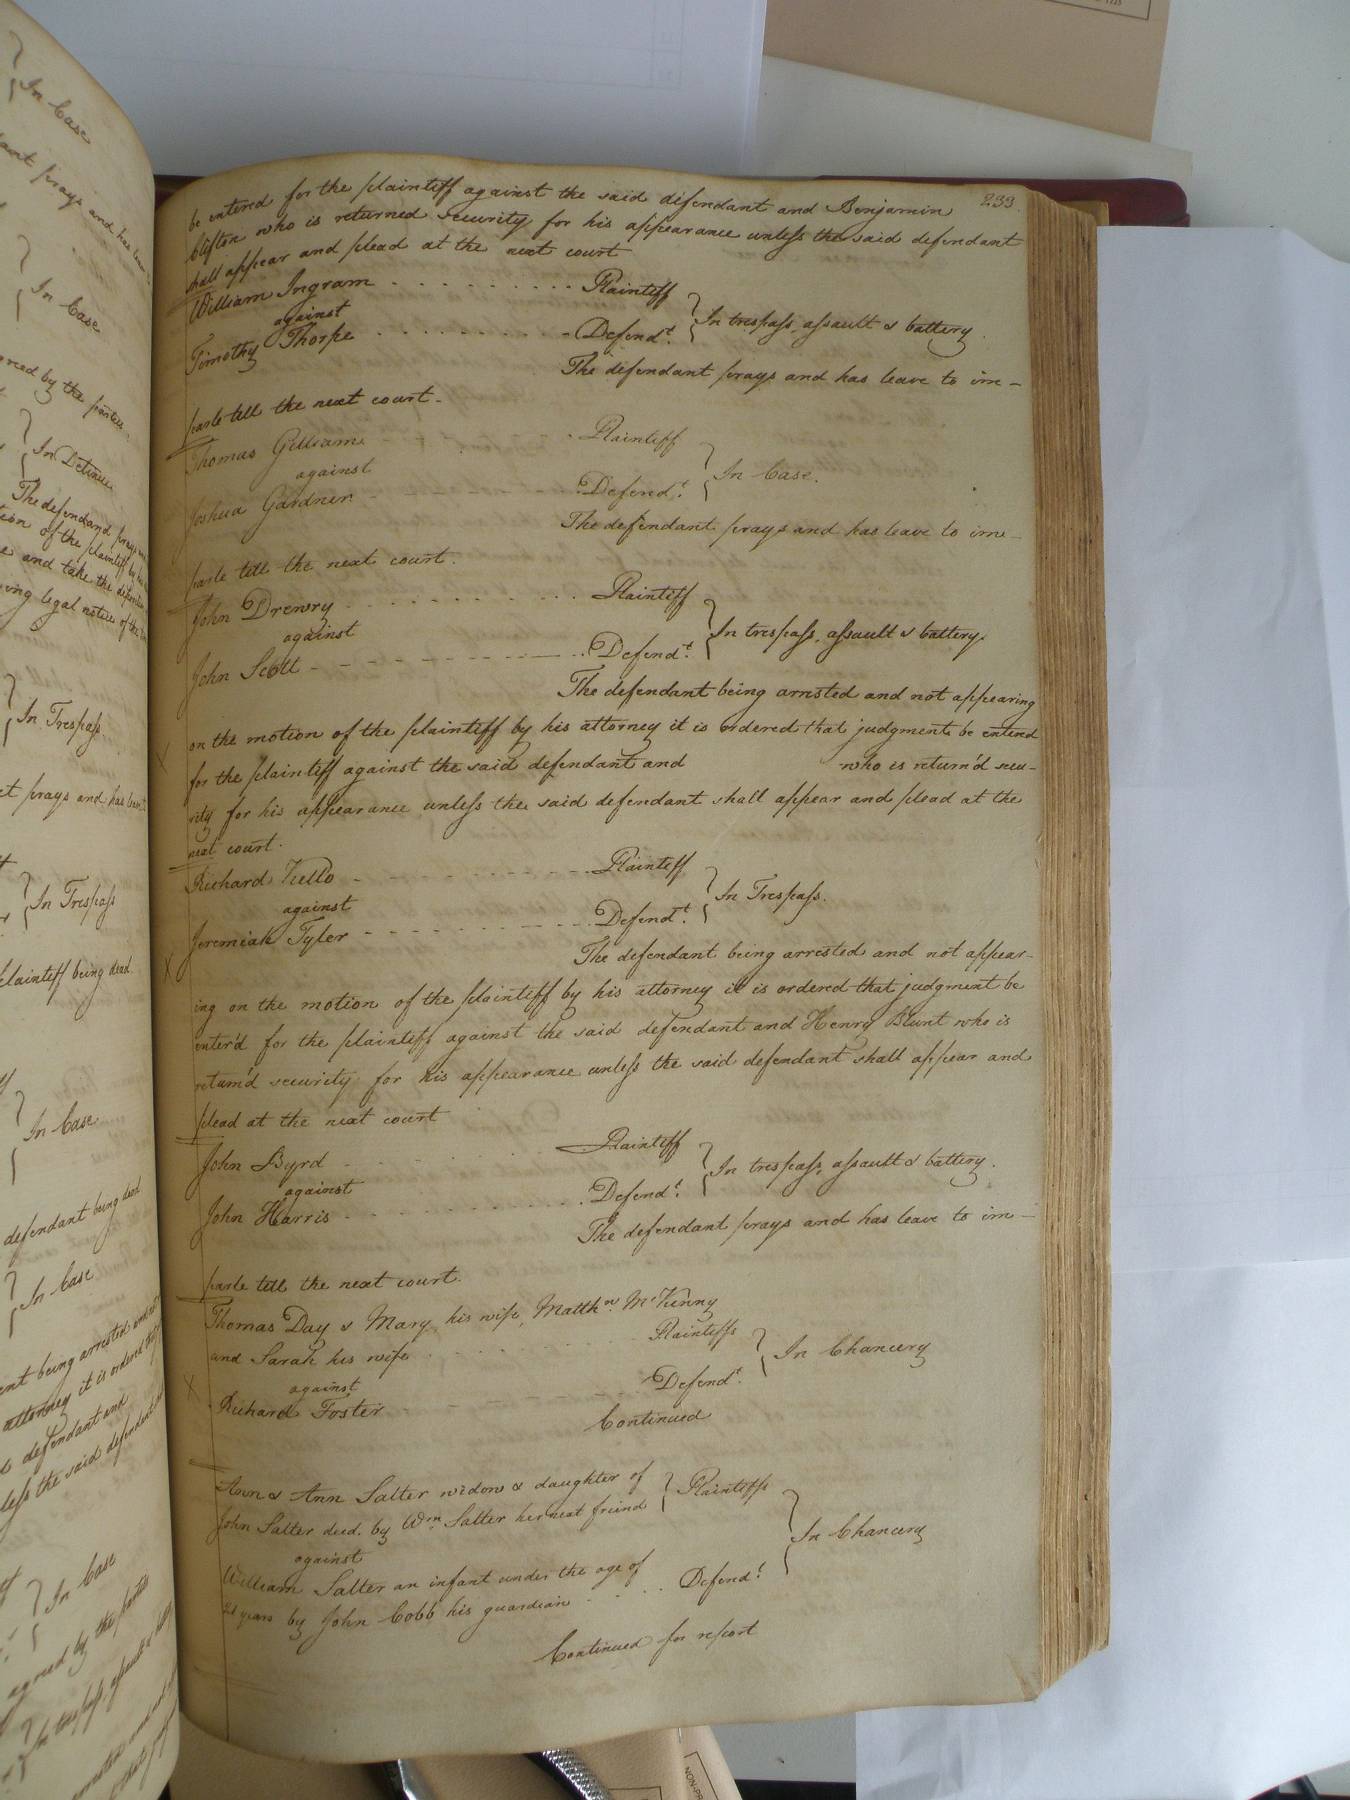 233
be entered for the plaintiff against the said defendant and Benjamin
Clifton who is returned security for his appearance unless the said defendant
shall appear and plead at the next court
William Ingram - - - - - - - - - - Plaintiff
against } In trespass, assault & battery.
Timothy Thorpe - - - - - - - - - Defendt.
The defendant prays and has leave to im-
parle till the next court.
Thomas Gilliam - Plaintiff
against } In Case.
Joshua Gardner - Defendt.
The defendant prays and has leave to im-
parle till the next court.
John Drewry - - - - - - - - - Plaintiff
against } In trespass, assault & battery.
John Scott - - - - - - - - - - Defendt.
The defendant being arrested and not appearing
on the motion of the plaintiff by his attorney it is ordered that judgment be entered
for the plaintiff against the said defendant and who is return'd secu-
rity for his appearance unless the said defendant shall appear and plead at the
next court.
Richard Kello - - - - - - - - - Plaintiff
against } In Trespass.
Jeremiah Tyler - - - - - - - - - Defendt.
The defendant being arrested and not appear-
ing on the motion of the plaintiff by his attorney it is ordered that judgment be
enter'd for the plaintiff against the said defendant and Henry Blunt who is
return'd security for his appearance unless the said defendant shall appear and
plead at the next court
John Byrd - - - - - Plaintiff
against } In trespass, assault & battery.
John Harris - - - - - - - - - Defendt.
The defendant prays and has leave to im-
parle till the next court.
Thomas Day & Mary his wife, Matthw. McKinny
and Sarah his wife - - - - - Plaintiffs
against } In Chancery
Richard Foster - - - - Defendt.
Continued
Ann & Ann Salter widow & daughter of } Plaintiffs
John Salter decd. by Wm. Salter her next friend
against } In Chancery
William Salter an infant under the age of
21 years by John Cobb his guardian - - - Defendt.
Continued for report
In Case
In Case
In Detinue
In Trespass
In Trespass
plaintiff being dead
In Case
defendant being dead
In Case
In Case
agreed by the parties